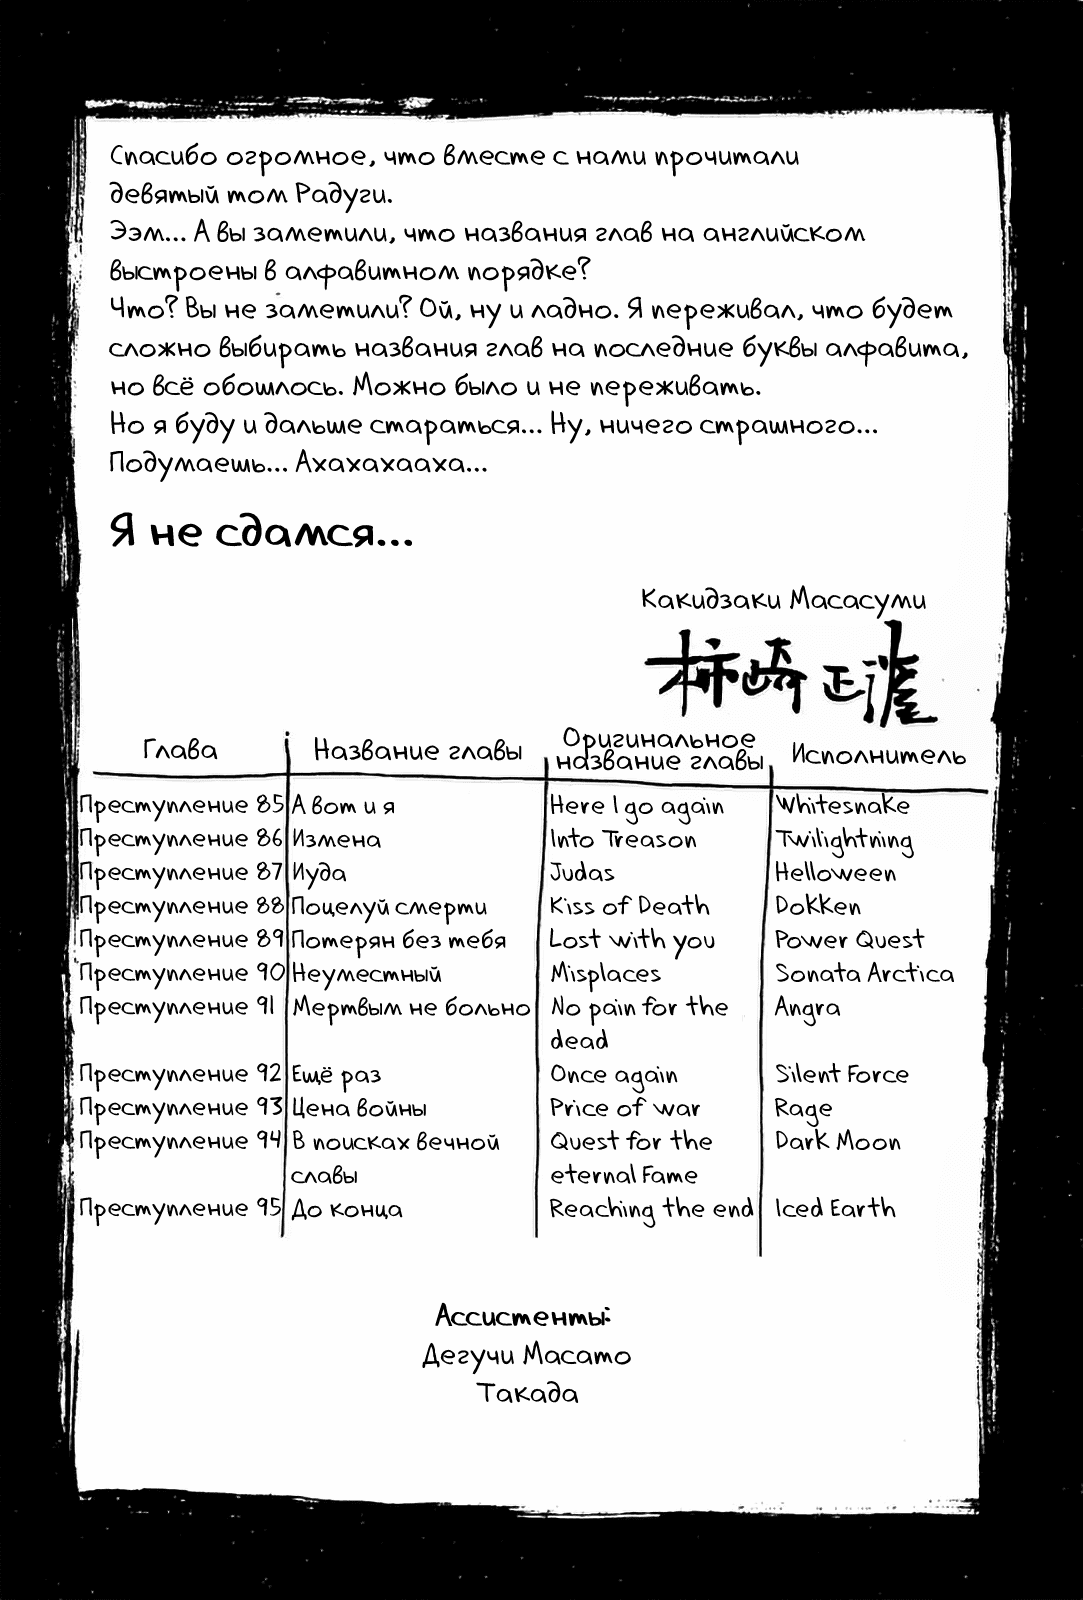 Спасибо огромное, что вместе с нами прочитали
девятый том Радуги.
Ээм... А вы заметили, что названия глав на английском
выстроены в алфавитном порядке?
Что? Вы не заметили? Ой, ну и ладно. Я переживал, что будет
сложно выбирать названия глав на последние буквы алфавита,
но всё обошлось. Можно было и не переживать.
Но я буду и дальше стараться... Ну, ничего страшного...
Подумаешь... Ахахахааха...
Я не сдамся...
Какидзаки Масасуми
柿崎正澄
Глава Название главы Оригинальное название главы Исполнитель
Преступление 85 А вот и я Here I go again Whitesnake
Преступление 86 Измена Into Treason Twilightning
Преступление 87 Иуда Judas Helloween
Преступление 88 Поцелуй смерти Kiss of Death Dokken
Преступление 89 Потерян без тебя Lost with you Power Quest
Преступление 90 Неуместный Misplaces Sonata Arctica
Преступление 91 Мертвым не больно No pain for the dead Angra
Преступление 92 Ещё раз Once again Silent Force
Преступление 93 Цена войны Price of war Rage
Преступление 94 В поисках вечной славы Quest for the eternal Fame Dark Moon
Преступление 95 До конца Reaching the end Iced Earth
Ассистенты:
Дегучи Масато
Такада